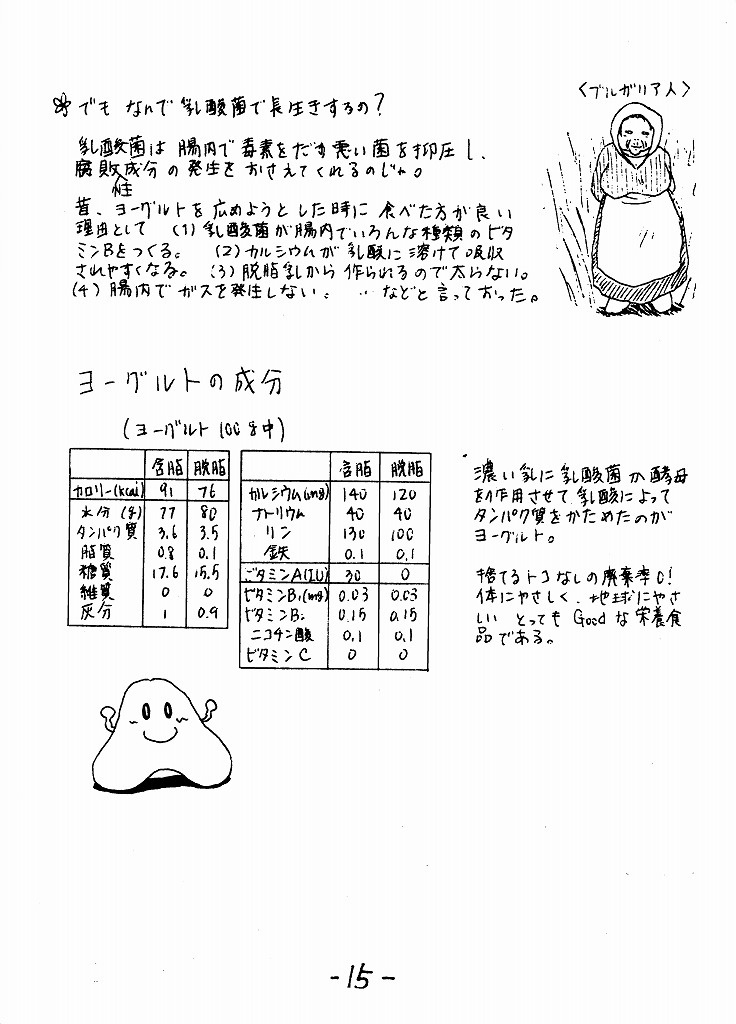 〈ブルガリア人〉
でも なんで 乳酸菌で長生きするの?
乳酸菌は 腸内で毒素をだす悪い菌を抑圧し、
腐敗性成分の発生を おさえてくれるのじゃ。
昔、ヨーグルトを広めようとした時に 食べた方が良い
理由として (1)乳酸菌が腸内でいろんな種類のビタ
ミンBをつくる。 (2)カルシウムが 乳酸に溶けて吸収
されやすくなる。(3)脱脂乳から作られるので太らない。
(4)腸内でガスを発生しない。 …などと言っておった。
ヨーグルトの成分
(ヨーグルト100g中)
含脂 脱脂
カロリー(kcal) 91 76
水分(g) 77 80
タンパク質 3.6 3.5
脂質 0.8 0.1
糖質 17.6 15.5
繊質 0 0
灰分 1 0.9
含脂 脱脂
カルシウム(mg) 140 120
ナトリウム 40 40
リン 130 100
鉄 0.1 0.1
ビタミンA(IU) 30 0
ビタミンB1(mg) 0.03 0.03
ビタミンB2 0.15 0.15
ニコチン酸 0.1 0.1
ビタミンC 0 0
濃い乳に乳酸菌か酵母
を作用させて 乳酸によって
タンパク質をかためたのが
ヨーグルト。
捨てるトコなしの廃棄率0!
体にやさしく、地球にやさ
しい とっても Goodな栄養食
品である。
-15-